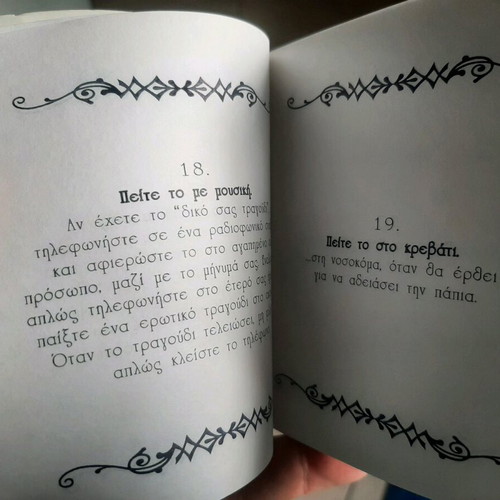 18.
Πείτε το με μουσική.
Αν έχετε το "δικό σας τραγούδι",
τηλεφωνήστε σε ένα ραδιοφωνικό
και αφιερώστε το στο αγαπημένο
πρόσωπο, μαζί με το μήνυμά σας
απλώς τηλεφωνήστε στο έτερό σας
παίξτε ένα ερωτικό τραγούδι στο
Όταν το τραγούδι τελειώσει, μη
απλώς κλείστε το
19.
Πείτε το στο κρεβάτι.
στη νοσοκόμα, όταν θα έρθει
για να αδειάσει την πάπια.